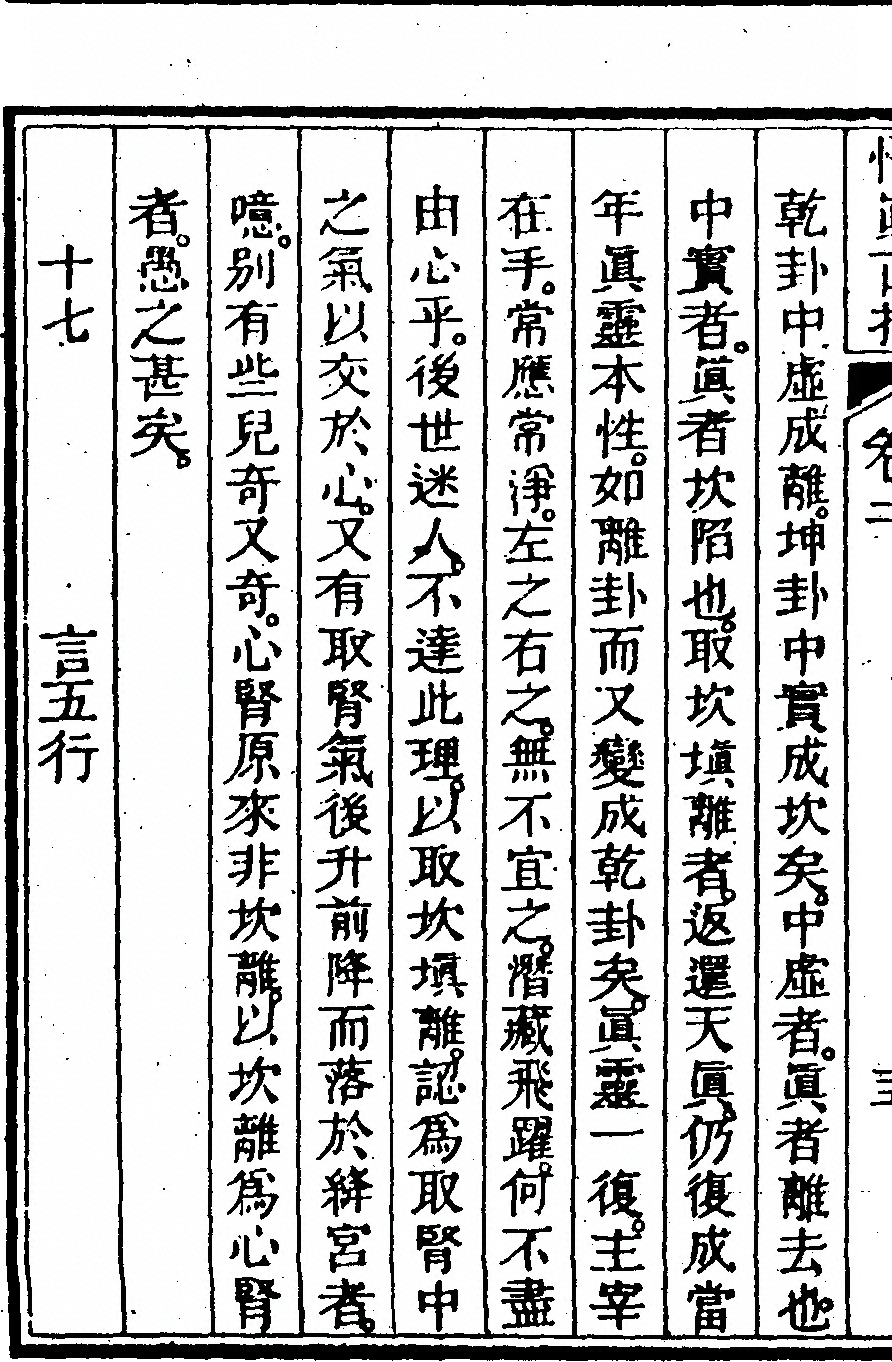 卷二
三
乾卦中虛成離。坤卦中實成坎矣。中虛者。眞者離去也。
中實者。眞者坎陷也。取坎塡離者。返還天眞。仍復成當
年眞靈本性。如離卦而又變成乾卦矣。眞靈一復。主宰
在手。常應常淨。左之右之。無不宜之。潛藏飛躍。何不盡
由心乎。後世迷人。不達此理。以取坎塡離。認爲取腎中
之氣以交於心。又有取腎氣後升前降而落於絳宮者。
噫。別有些兒奇又奇。心腎原來非坎離。以坎離爲心腎
者。愚之甚矣。
十七　言五行